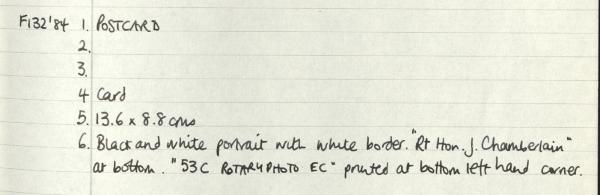 F132'84 1. POSTCARD
2.
3.
4 Card
5. 13.6 x 8.8 cms
6. Black and white portrait with white border. "Rt Hon. J. Chamberlain"
at bottom. "53 C ROTARY PHOTO EC" printed at bottom left hand corner.